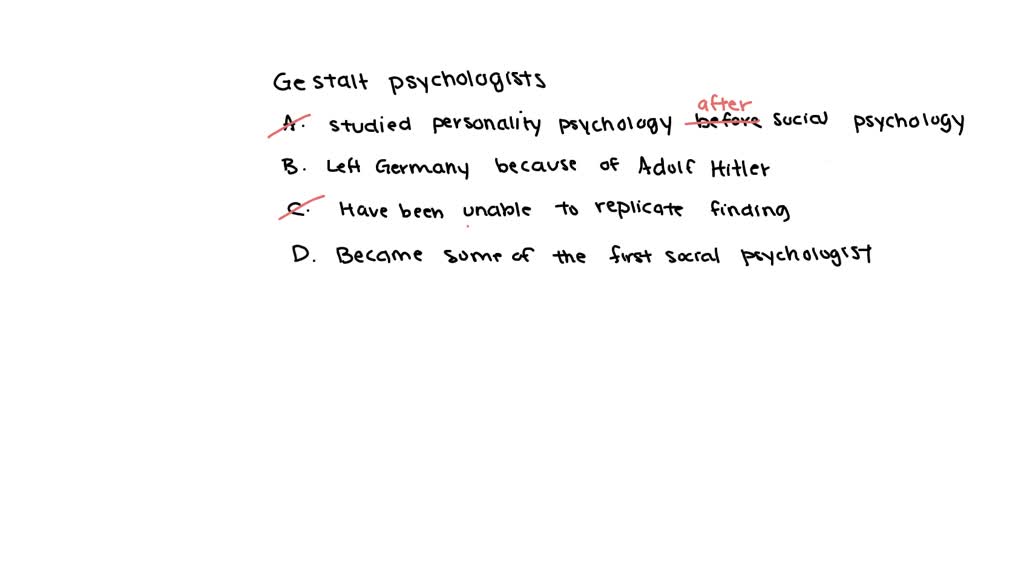 Gestalt psychologists
after
A. studied personality psychology before social psychology
B. Left Germany because of Adolf Hitler
C. Have been unable to replicate finding
D. Became some of the first social psychologist